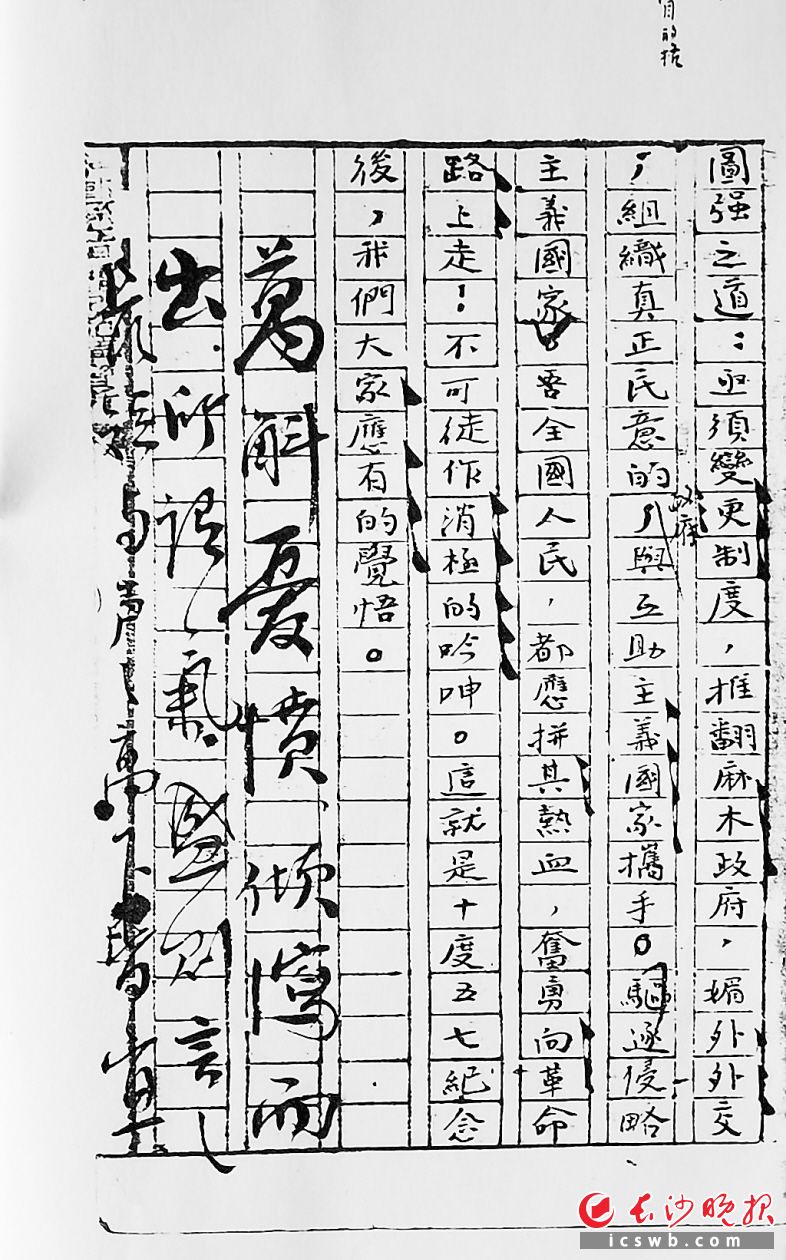 目的
圖强之道：亟須變更制度，推翻麻木政府，媚外外交
，組織真正民意的政府，與互助主義國家攜手。驅逐侵略
主義國家。吾全國人民，都應拼其熱血，奮勇向革命
路上走！不可徒作消極的吟呻。這就是十度五七紀念
後，我們大家應有的覺悟。
萬斛憂憤傾瀉而
出所謂氣盛則言之
短與聲之高下皆宜
长沙晚报
icswb.com